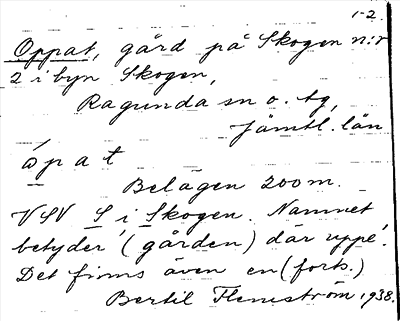 1-2.
Oppat, gård på Skogen n:r
2 i byn Skogen,
Ragunda sn o. tg,
Jämtl. län
òpat
Belägen 200 m.
VSV S i Skogen. Namnet
betyder '(gården) där uppe'.
Det finns även en (forts.)
Bertil Flemström 1938.